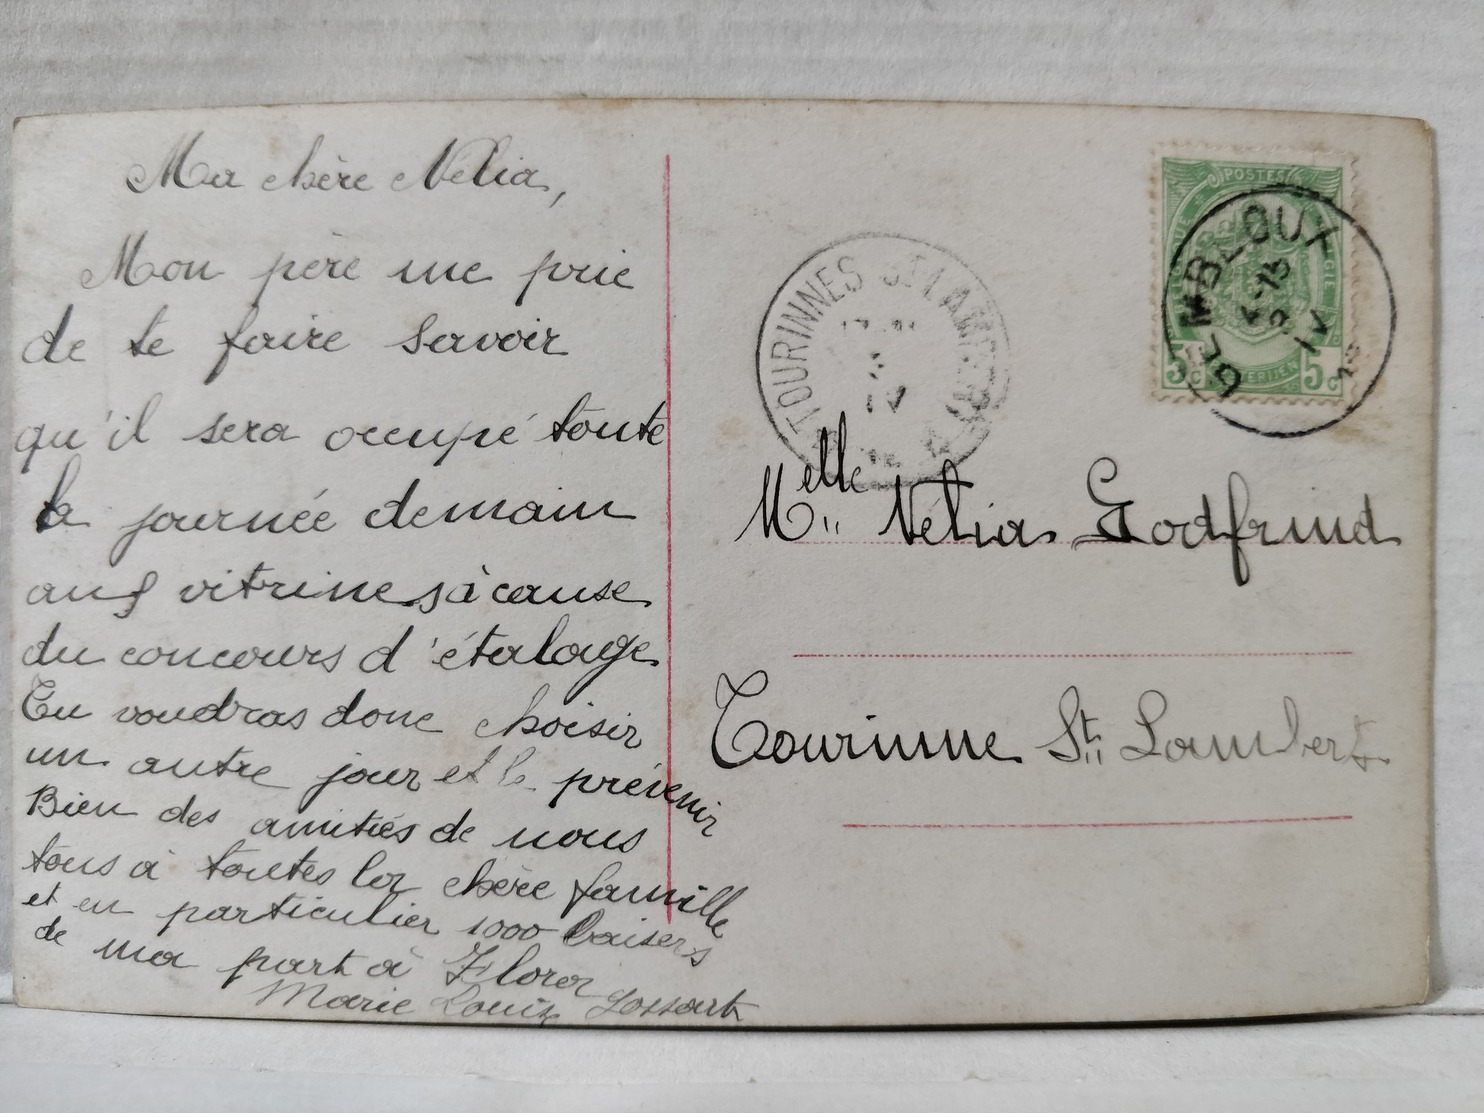 Ma chère Nélia,
Mon père me prie
de te faire savoir
qu'il sera occupé toute
la journée demain
aux vitrines à cause
du concours d'étalage
Tu voudras donc choisir
un autre jour et le prévenir
Bien des amitiés de nous
tous à toutes la chère famille
et en particulier 1000 baisers
de ma part à Flora
Marie Louise Gossart
TOURINNES ST LAMBERT
IV
POSTES
5 C
5 C
GEMBLOUX
IV
Melle Nélia Godfrind
Tourinne St. Lambert